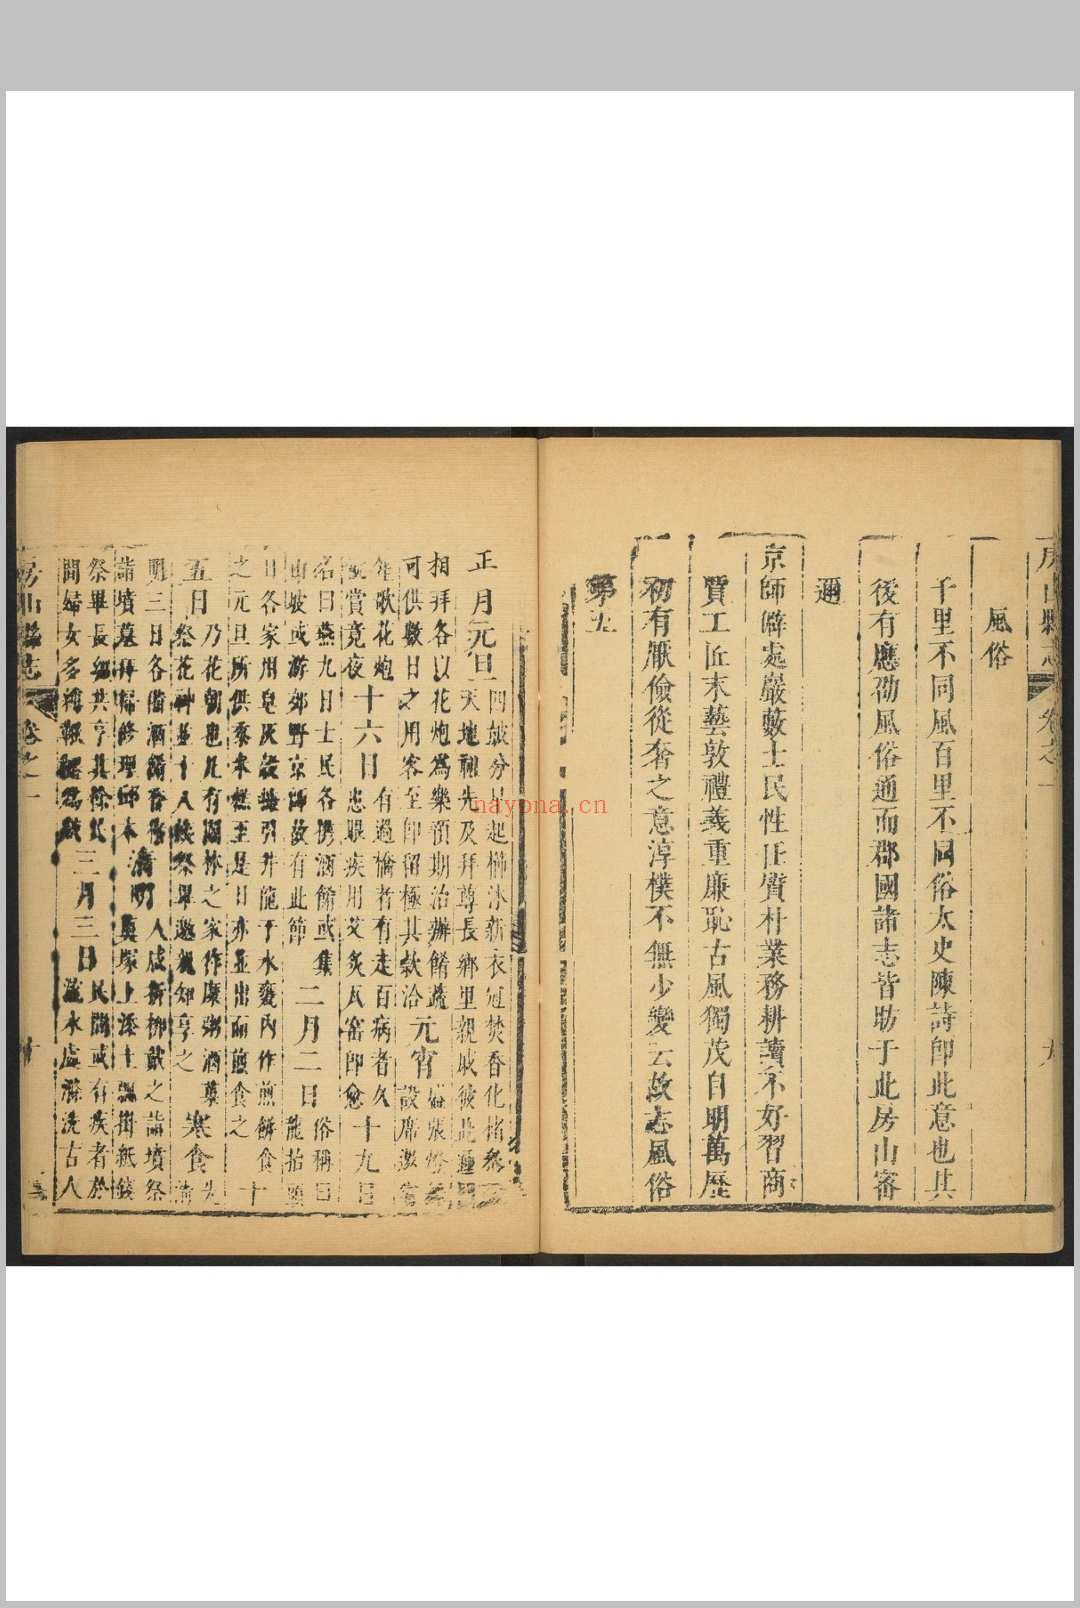 房山縣志 卷之一 九
風俗
千里不同風百里不同俗太史陳詩即此意也其
後有應劭風俗通而郡國諸志皆昉于此房山審
邇
京師僻處巖藪士民性任質朴業務耕讀不好習商
賈工匠末藝敦禮義重廉恥古風獨茂自明萬歷
初有厭儉從奢之意淳樸不無少變云故志風俗
第九
正月元旦
四鼓分 起櫛沐新衣冠焚香化楮參
天地神先及拜尊長鄉里親戚彼此
相拜各以花炮為樂預期治辦餚蔬
可供數日之用客至卽留極其款洽
元宵
張燈
設席邀
歌花炮
賞竟夜
十六日
有過橋者有走百病者久
患眼疾用艾炙瓦窑卽愈
十九日
名曰燕九日士民各携酒餚或集
山坡或游郊野京師故有此節
二月二日
俗稱曰
龍抬頭
日各家用皂灰 引井龍于水甕內作煎餅食
之元旦所供黍 至是日亦並出而煎食之
十
五日
乃花朝也凡有園林之家作
祭花神並十 祭畢邀親知享之
寒食
三日各備酒餚
詣墳墓拜掃修理
清明
人咸折柳戴之詣墳祭
塚上添土 掛紙錢
祭畢長幼共享其餘民
間婦女多 為戲
三月三日
民間或有疾者於
水 滌洗古人
房山縣志 卷之一
nayona.cn